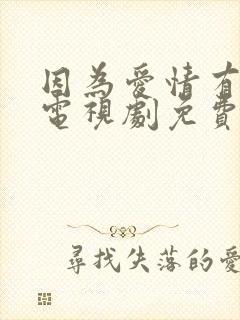 因為愛情有
電視劇免費
尋找失落的愛